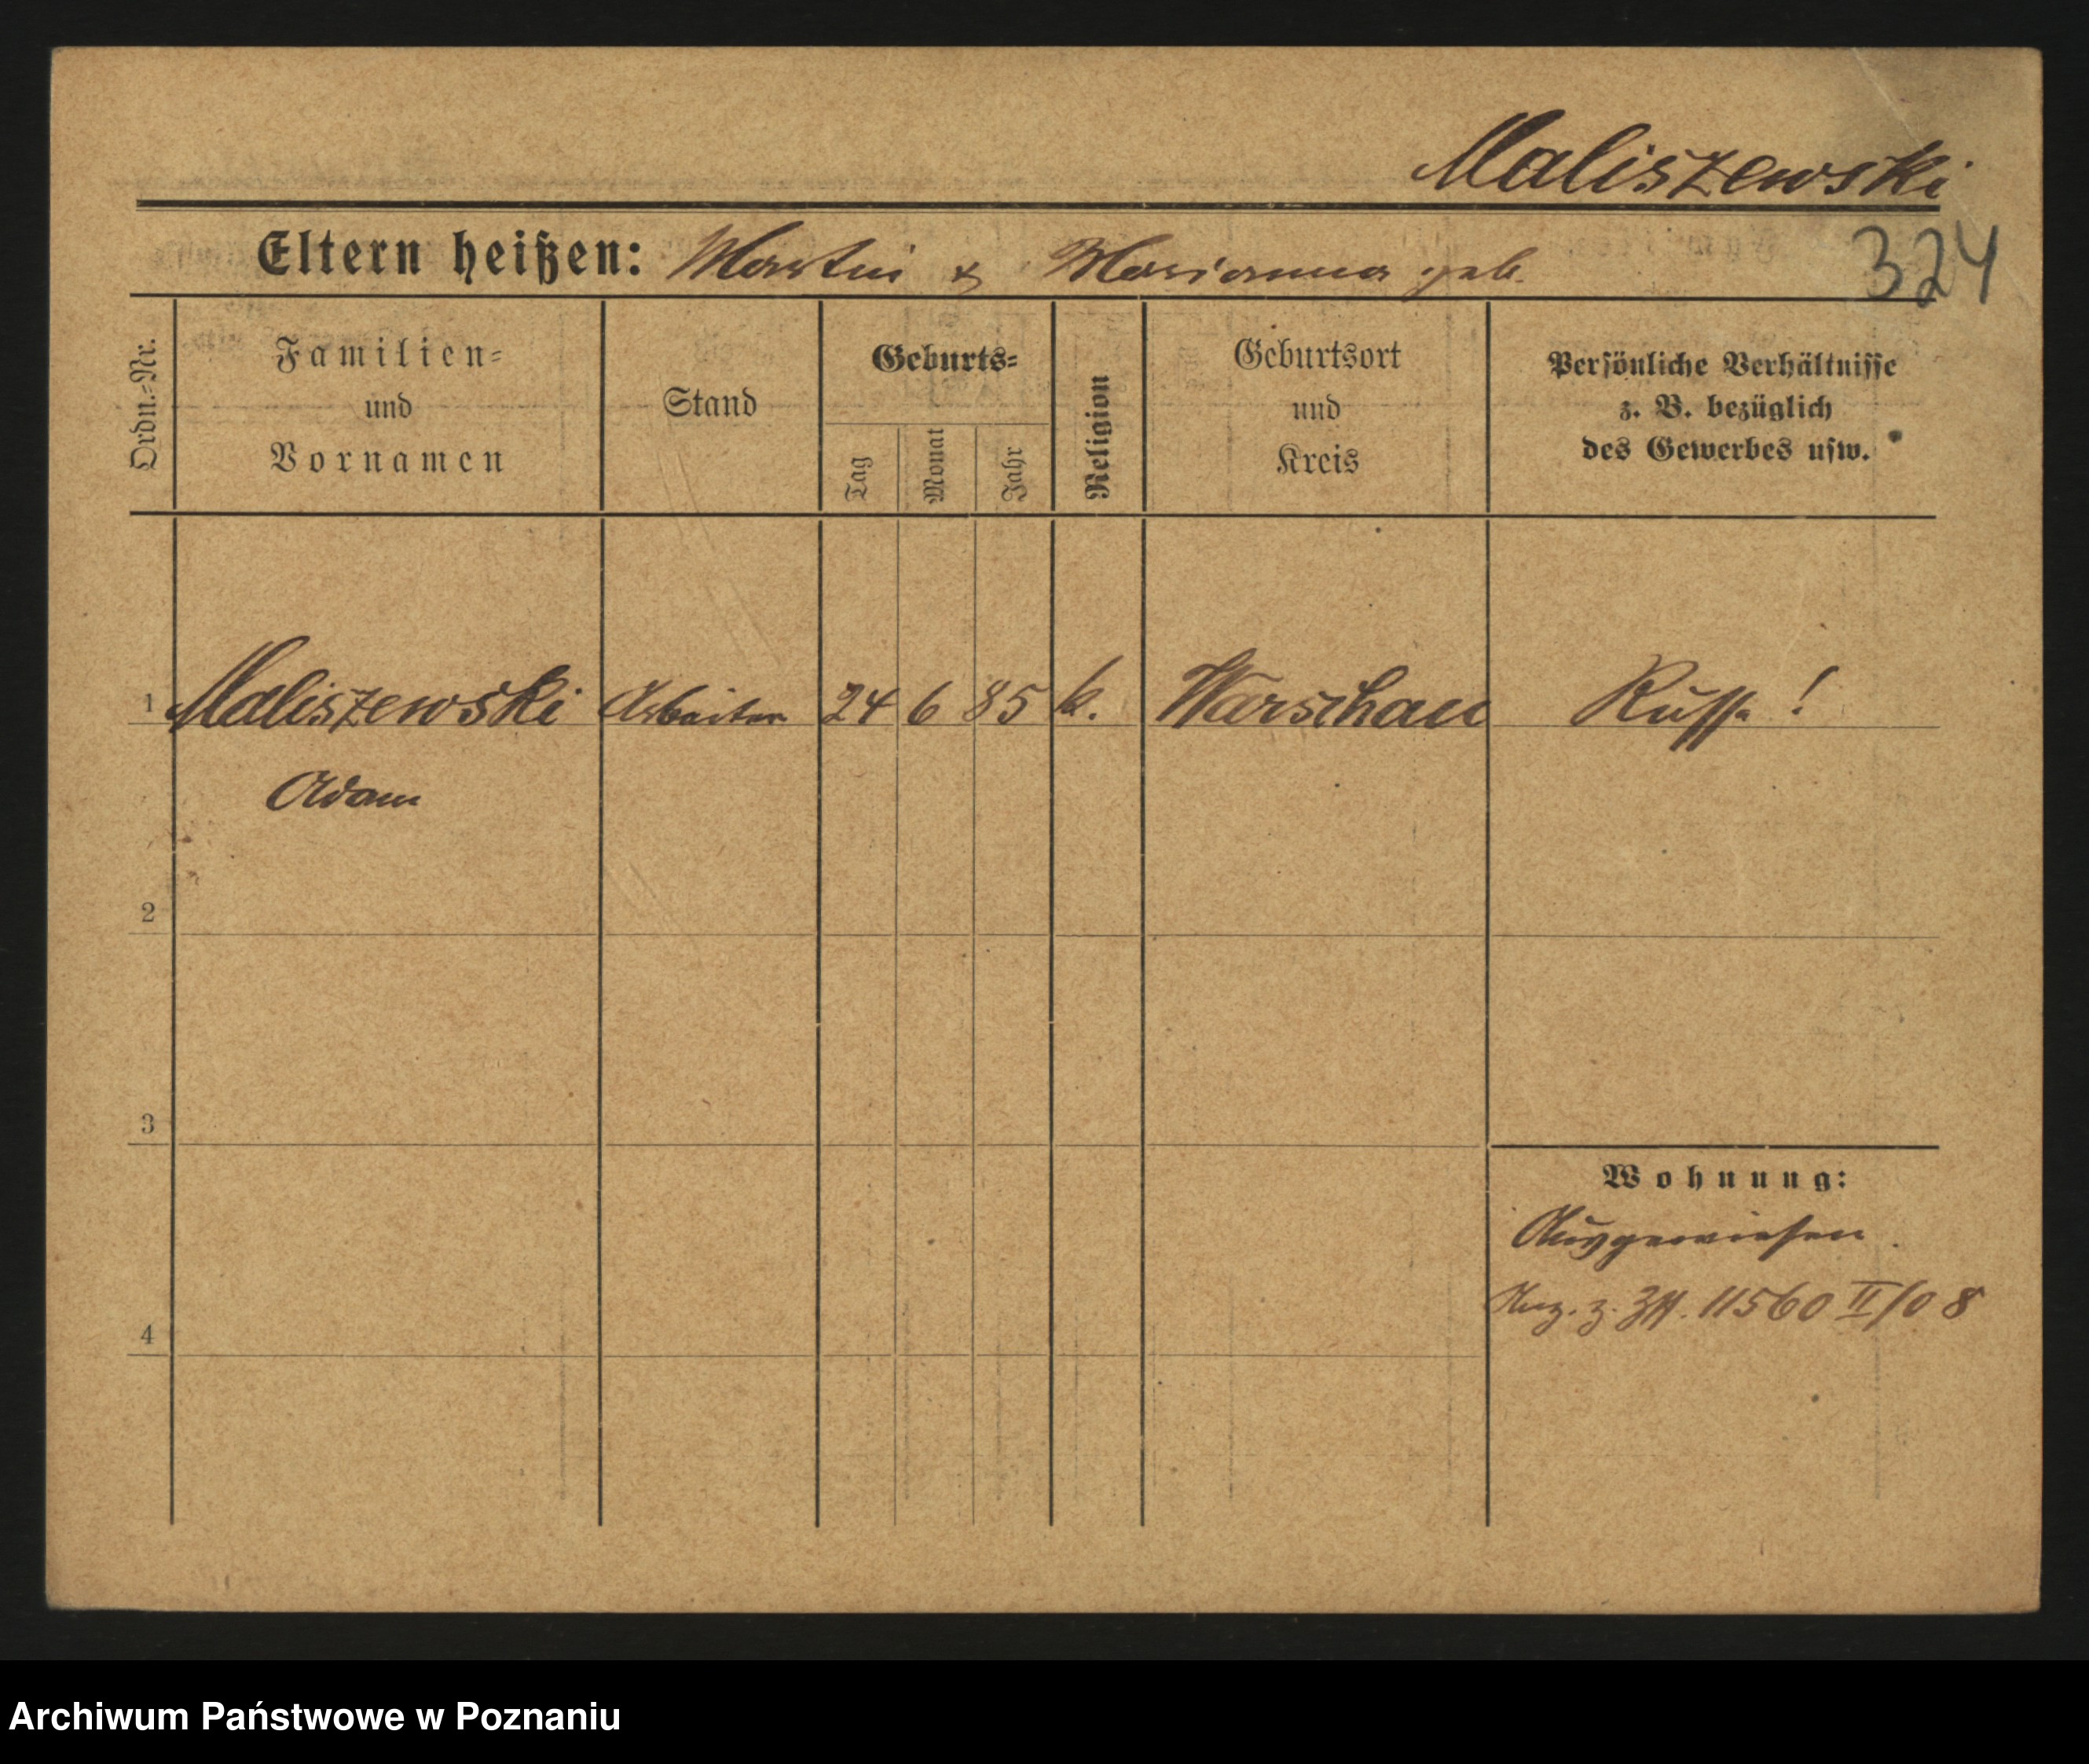 Maliszewski
Eltern heißen: Martin & Marianna geb.
324
Ordn.-Nr.
Familien-
und
Vornamen
Stand
Geburts-
Tag
Monat
Jahr
Religion
Geburtsort
und
Kreis
Persönliche Verhältnisse
z. B. bezüglich
des Gewerbes usw.
1 Maliszewski Arbeiter 24 6 85 k. Warschau Russe!
Adam
2
3
Wohnung:
Ausgewiesen.
z. 11560 II/08
4
Archiwum Państwowe w Poznaniu